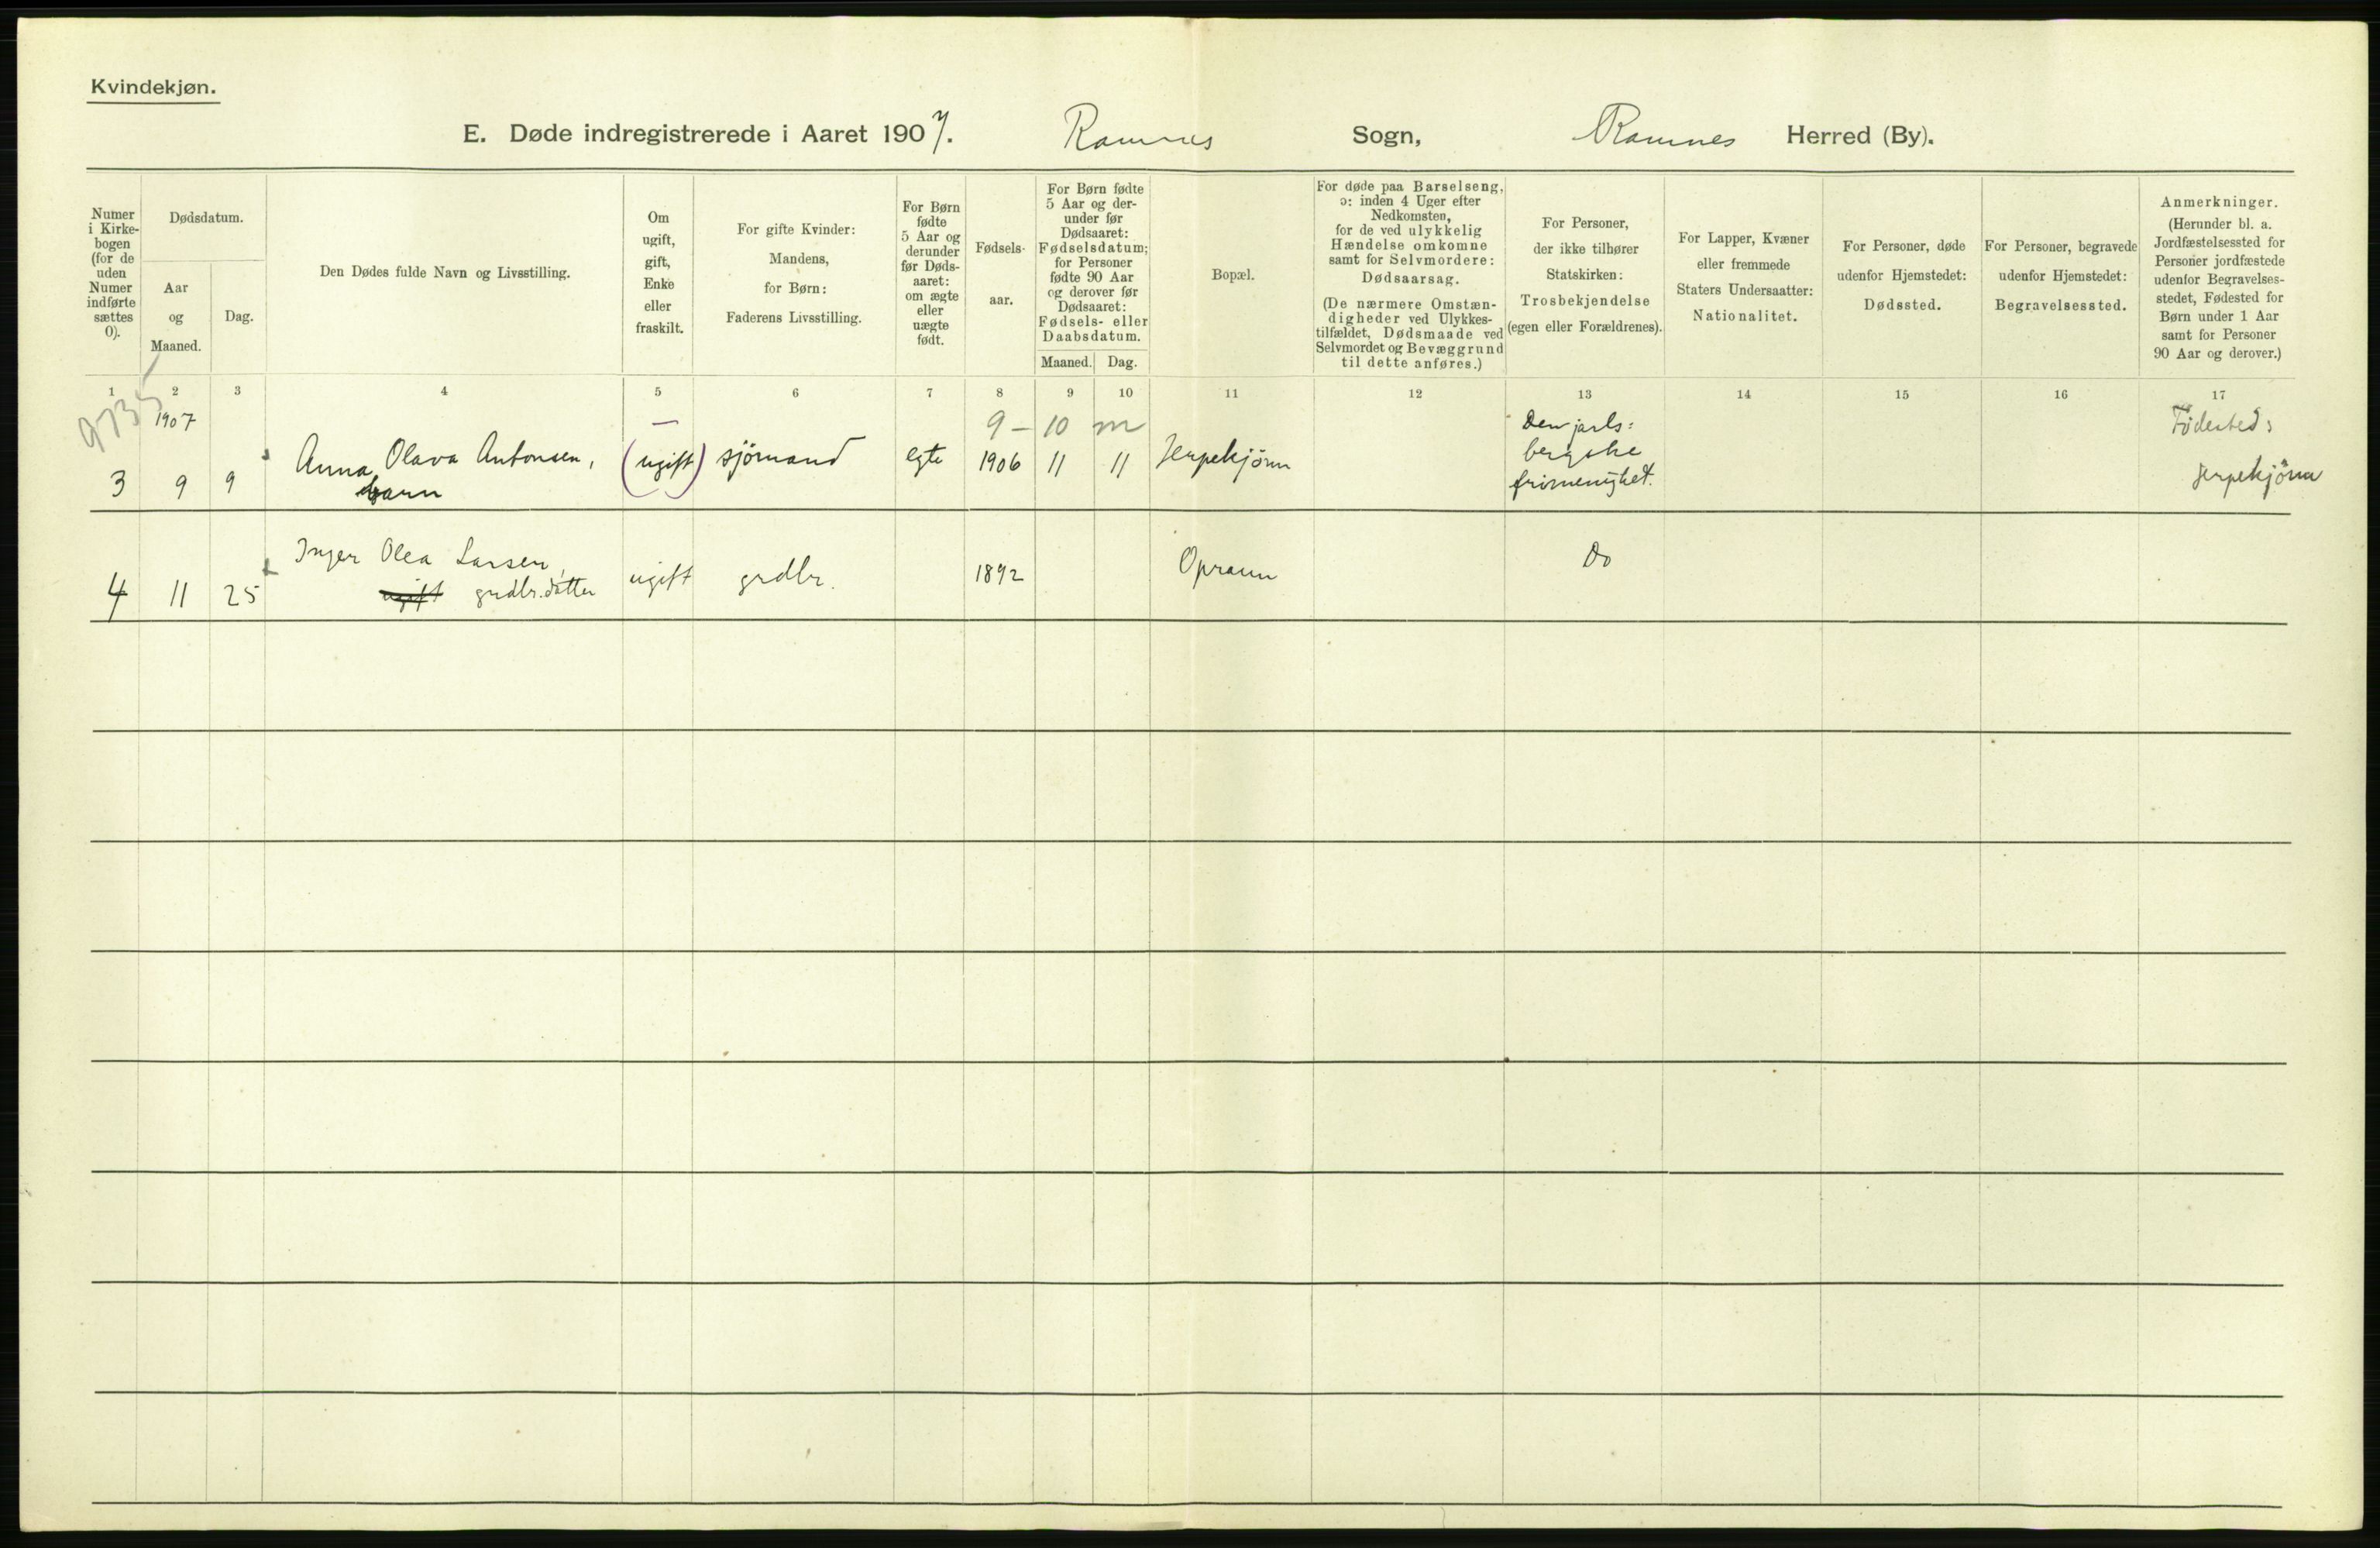 Kvindekjøn.
E. Døde indregistrerede i Aaret 1907. Ramnes Sogn, Ramnes Herred (By).
Numer
i Kirke-
bogen
(for de
uden
Numer
indførte
sættes
0).
Dødsdatum.
Aar
og
Maaned.
Dag.
Den Dødes fulde Navn og Livsstilling.
Om
ugift,
gift,
Enke
eller
fraskilt.
For gifte Kvinder:
Mandens,
for Børn:
Faderens Livsstilling.
For Børn
fødte
5 Aar og
derunder
før Døds-
aaret:
om ægte
eller
uægte
født.
Fødsels-
aar.
For Børn fødte
5 Aar og der-
under før
Dødsaaret:
Fødselsdatum;
for Personer
fødte 90 Aar
og derover før
Dødsaaret:
Fødsels- eller
Daabsdatum.
Maaned. Dag.
Bopæl.
For døde paa Barselseng,
ɔ: inden 4 Uger efter
Nedkomsten,
for de ved ulykkelig
Hændelse omkomne
samt for Selvmordere:
Dødsaarsag.
(De nærmere Omstæn-
digheder ved Ulykkes-
tilfældet, Dødsmaade ved
Selvmordet og Bevæggrund
til dette anføres.)
For Personer,
der ikke tilhører
Statskirken:
Trosbekjendelse
(egen eller Forældrenes).
For Lapper, Kvæner
eller fremmede
Staters Undersaatter:
Nationalitet.
For Personer, døde
udenfor Hjemstedet:
Dødssted.
For Personer, begravede
udenfor Hjemstedet:
Begravelsessted.
Anmerkninger.
(Herunder bl. a.
Jordfæstelsessted for
Personer jordfæstede
udenfor Begravelses-
stedet, Fødested for
Børn under 1 Aar
samt for Personer
90 Aar og derover.)
1 2 3 4 5 6 7 8 9 10 11 12 13 14 15 16 17
9735
1907
9 – 10 m
3 9 9 Anna Olava Antonsen,
barn
(ugift) sjömand egte 1906 11 11 Jerpekjönn
Den jarls=
bergske
frimenighet.
Födested:
Jerpekjönn
4 11 25 Inger Olea Larsen,
ugift grdbr. datter
ugift grdbr. 1892 Opraun Do